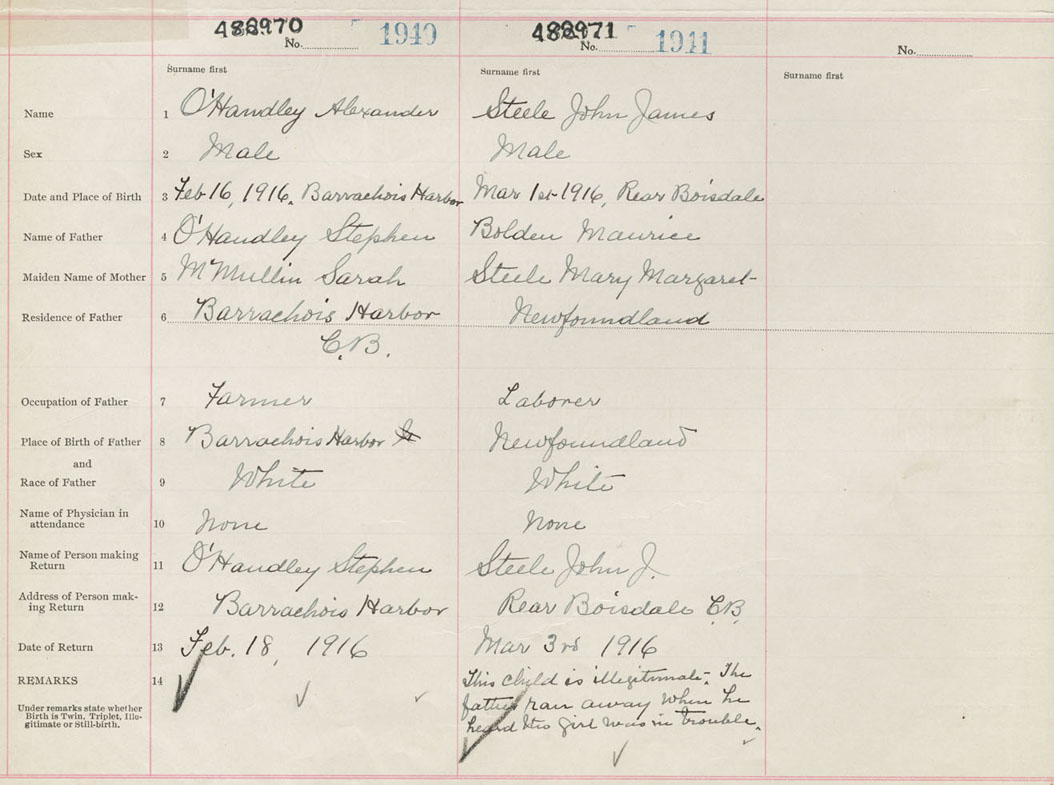 486970 1940 486971 1941
No. No. No.
Surname first Surname first Surname first
Name 1 O'Handley Alexander Steele John James
Sex 2 Male Male
Date and Place of Birth 3 Feb 16, 1916. Barrachois Harbor Mar 1st 1916, Rear Boisdale
Name of Father 4 O'Handley Stephen Bolden Maurice
Maiden Name of Mother 5 McMullin Sarah Steele Mary Margaret
Residence of Father 6 Barrachois Harbor Newfoundland
C.B.
Occupation of Father 7 Farmer Laborer
Place of Birth of Father 8 Barrachois Harbor Newfoundland
and
Race of Father 9 White White
Name of Physician in
attendance 10 None None
Name of Person making
Return 11 O'Handley Stephen Steele John J.
Address of Person mak-
ing Return 12 Barrachois Harbor Rear Boisdale C.B.
Date of Return 13 Feb. 18, 1916 Mar 3rd 1916
REMARKS 14 This child is illegitimate. The
Under remarks state whether father ran away when he
Birth is Twin, Triplet, Ille- heard his girl was in trouble.
gitimate or Still-birth.